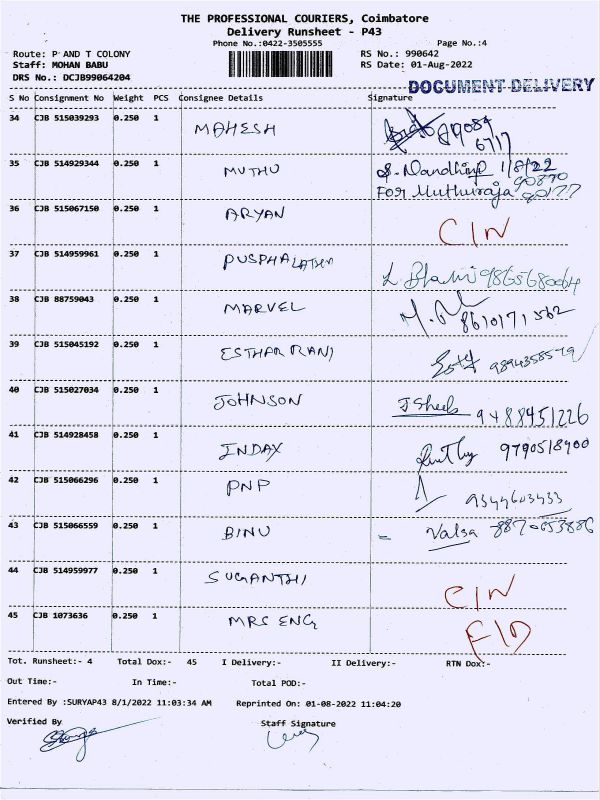 THE PROFESSIONAL COURIERS, Coimbatore
Delivery Runsheet - P43
Phone No.:0422-3505555 Page No.:4
Route: P AND T COLONY RS No.: 990642
Staff: MOHAN BABU RS Date: 01-Aug-2022
DRS No.: DCJB99064204
DOCUMENT DELIVERY
S No Consignment No Weight PCS Consignee Details Signature
34 CJB 515039293 0.250 1 MAHESH
35 CJB 514929344 0.250 1 MUTHU S. Nandhini 1/8/22
For Muthuraja
36 CJB 515067150 0.250 1 ARYAN C/N
37 CJB 514959961 0.250 1 PUSPHALATHA
38 CJB 88759043 0.250 1 MARVEL 8610171562
39 CJB 515045192 0.250 1 ESTHAR RANI 9894358579
40 CJB 515027034 0.250 1 JOHNSON 9488951226
41 CJB 514928458 0.250 1 INDAX 9790518900
42 CJB 515066296 0.250 1 PNP 9344603433
43 CJB 515066559 0.250 1 BINU = Valsa
44 CJB 514959977 0.250 1 SUGANTHI C/N
45 CJB 1073636 0.250 1 MRS ENG F/D
Tot. Runsheet:- 4 Total Dox:- 45 I Delivery:- II Delivery:- RTN Dox:-
Out Time:- In Time:- Total POD:-
Entered By :SURYAP43 8/1/2022 11:03:34 AM Reprinted On: 01-08-2022 11:04:20
Verified By Staff Signature